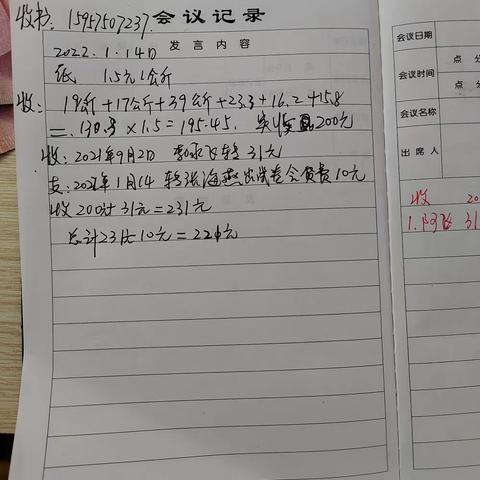 收书: 15957507237. 会议记录
2022.1.14日 发言内容
纸 1.5元1公斤
收: 19公斤+17公斤+39公斤+23.3+16.2+15.8
=130.3×1.5=195.45. 实收 200元
收: 2021年9月2日 转 31元
支: 2022年1月14 转张海燕 会费费10元
收200元 31元=231元
总计231元 10元=221元
会议日期
会议时间 点 分
点 分
会议名称
出席人
收 20
1. 31